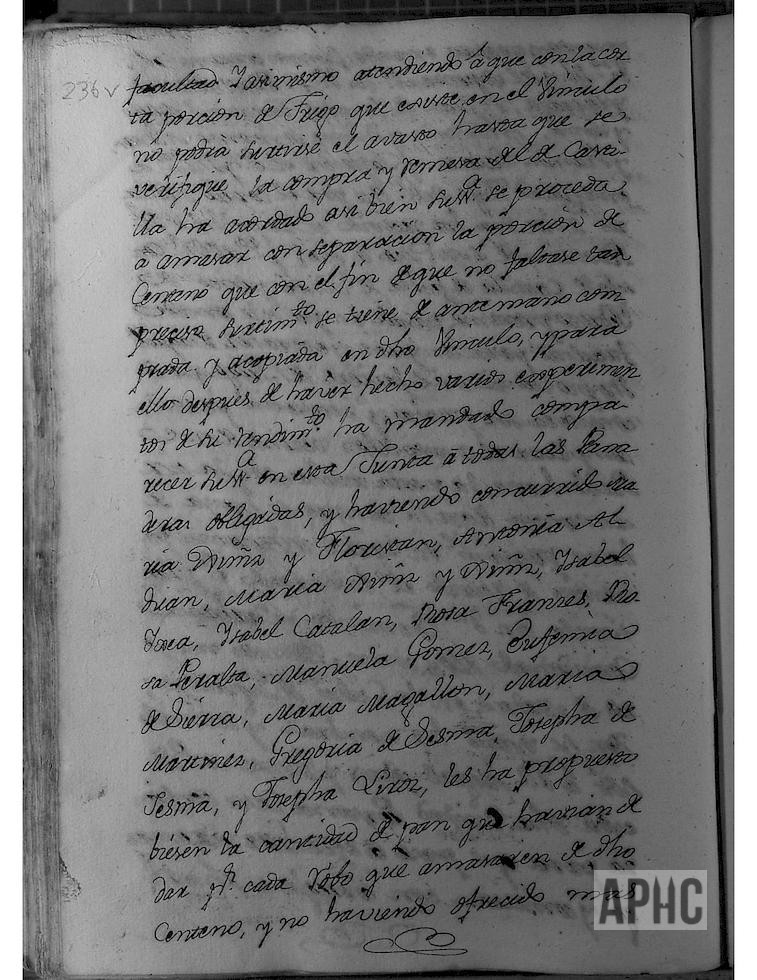 236v
facultad Yasimismo atendiendo â que con la cor
ta porcion de Trigo que existe en el Vinculo
no podia surtirse el avasto hasta que se
verifique la compra y remesa del de Casti-
lla ha acordado asi bien su Sª. se proceda
â amasar con separacion la porcion de
Centeno que con el fin de que no faltase tan
preciso surtimto. se tiene de antemano com
prada y acopiada en dho Vinculo, y para
ello despues de haver hecho varios experimen
tos de su rendimto. ha mandado compa
recer su Sª. en esta Junta â todas las Pana
deras obligadas, y haviendo concurrido Ma
ria y Floristan, Antonia Al
dran, Maria y Ysabel
Ysabel Catalan, Rosa Franzes, Ro
sa Peralta, Manuela Gomez, Eufemia
de Sierra, Maria Magallon, Maria
Martinez, Gregoria de Sesma, Josepha de
Sesma, y Josepha Liroz, les ha propuesto
biesen la cantidad de pan que havian de
dar pr. cada Robo que amasasen de dho
Centeno, y no haviendo ofrecido mas
APHC